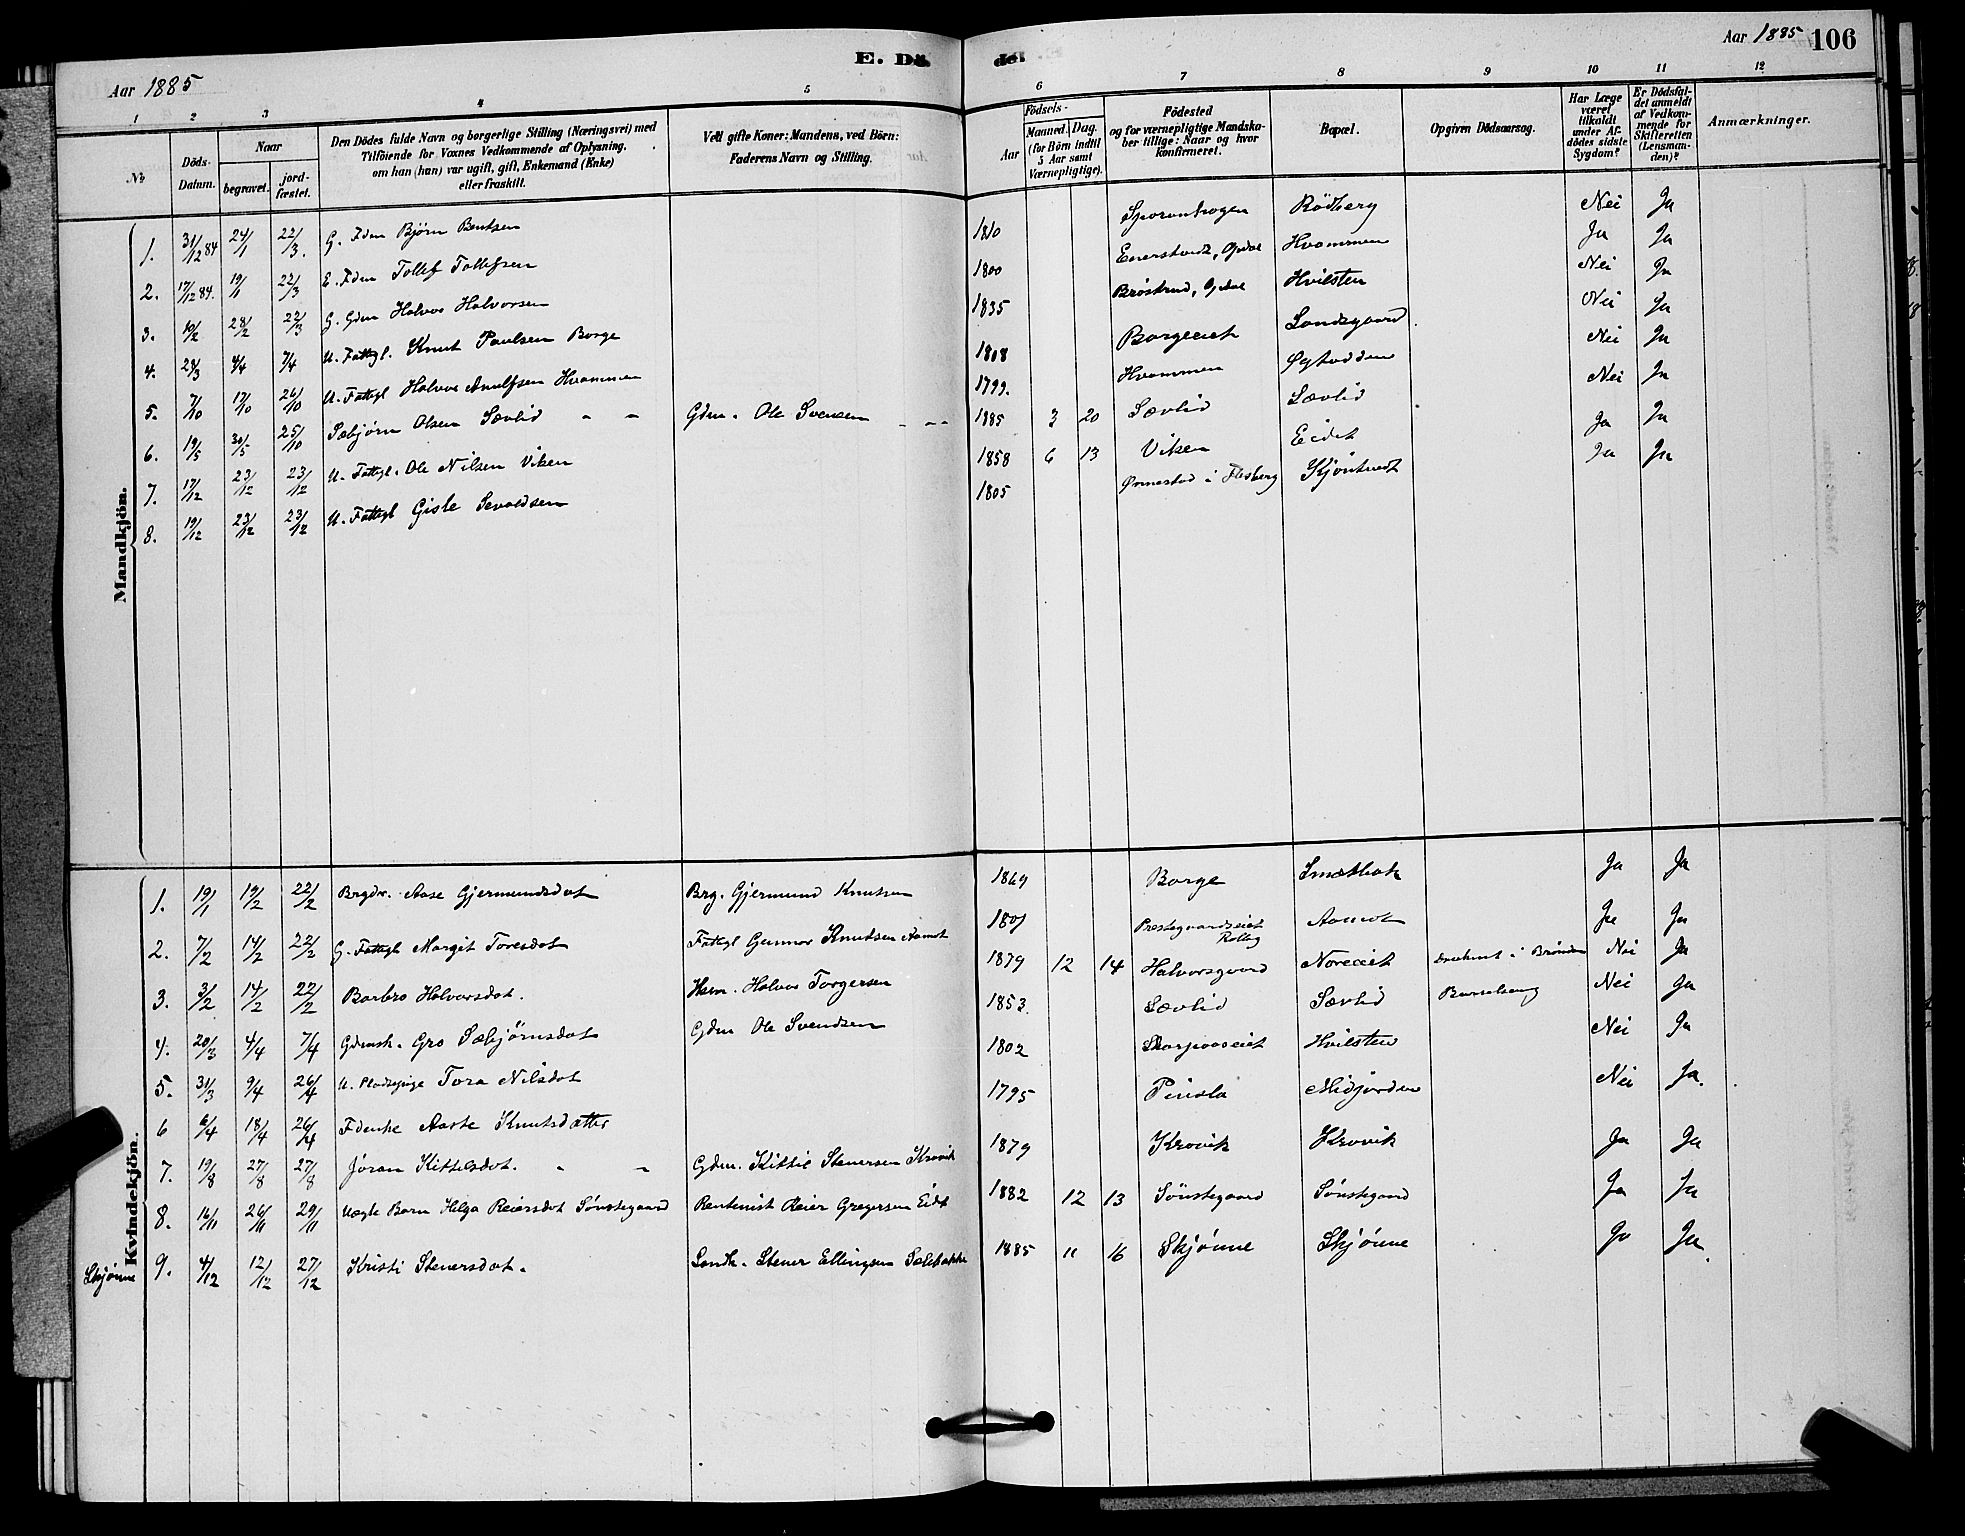 Aar 1885
E. Dö- de.
Aar 1885 106
1 2 3 4 5 6 7 8 9 10 11 12
No
Döds-Datum.
Naar
begravet.
jord-fæstet.
Den Dödes fulde Navn og borgerlige Stilling (Næringsvei) med
Tilföiende for Voxnes Vedkommende af Oplysning,
om han (hun) var ugift, gift, Enkemand (Enke)
eller fraskilt.
Ved gifte Koner: Mandens, ved Börn:
Faderens Navn og Stilling.
Födsels-
Aar
Maaned. Dag.
(for Börn indtil
5 Aar samt
Værnepligtige).
Födested
og for værnepligtige Mandska-
ber tillige: Naar og hvor
konfirmeret.
Bopæl.
Opgiven Dödsaarsag.
Har Læge
været
tilkaldt
under Af-
dödes sidste
Sygdom?
Er Dödsfal-
det anmeldt
af Vedkom-
mende for
Skifteretten
(Lensman-
den)?
Anmærkninger.
Mandkjön.
1. 31/12 84 24/1 22/3. G. Fdm Björn Bentsen 1810 Rödberg Nei Ja
2. 17/12 84. 19/1 22/3 E. Fdm Tollef Tollefsen 1800 Enerstvedt, Opdal Hvammen Ja Ja
3. 10/2 28/2 22/3 G. Gdm Halvor Halvorsen 1835 Bröstrud, Opdal Hvilsten Nei Ja
4. 28/3 4/4 7/4 U. Fattgl. Knut Paulsen Borge 1808 Borgeeiet Landsgaard Nei Ja
5. 7/10 17/10 26/10 U. Fattgl Halvor Anulfsen Hvammen 1799. Hvammen Øgtodden Nei Ja
6. 19/5 30/5 25/10 Sæbjörn Olsen Sævlid " " Gdm. Ole Svensen " " " 1885 3 20 Sævlid Sævlid Nei Ja
7. 17/12 23/12 23/12 U. Fattgl. Ole Nilsen Viken 1858 6 13 Viken Eidet Ja Ja
8. 19/12 23/12 23/12 U. Fattgl Gisle Sevaldsen 1805 Ormestad i Flesberg Skjöntvedt Ja Ja
Kvindekjön.
1. 19/1 19/2 22/2 Brgdr. Aase Gjermundsdot Brg. Gjermund Knutsen 1869 Borge Smetbak Ja Ja
2. 7/2 14/2 22/2 G. Fattgl Margit Toresdot Fattgl Gunnar Knutsen Aamot 1801 Prestegaardseiet Rollag Aamot Ja Ja
3. 3/2 14/2 22/2 Barbro Halvorsdot. Hsm. Halvor Torgersen 1879 12 14 Halvorsgaard Noreeiet Druknet i Brönden Nei Ja
4. 20/3 4/4 7/4 Gdmsk. Gro Sæbjörnsdot Gdm Ole Svendsen 1853. Sævlid Sævlid Barselseng Nei Ja
5. 31/3 9/4 26/4 U. Tora Nilsdot 1802 Hvilsten Nei Ja
6 6/4 18/4 26/4 Fdenke Aaste Knutsdatter 1795 Pinsla Midjorden Nei Ja.
7. 19/8 27/8 27/8 Jöran Kittelsdot. " " Gdm. Kittil Stenersen Kravik 1879 Kravik Kravik Ja Ja
8. 16/11 26/11 29/11 Uægte Barn Helga Reiersdot Sönstegaard Rentenist Reier Gregersen Eidt 1882 12 13 Sönstegaard Sönstegaard Ja Ja
Skjönne 9. 4/12 12/12 27/12 Kristi Stenersdot. Landh. Stener Ellingsen Sælebakke 1885 11 16 Skjönne Skjönne Ja Ja.